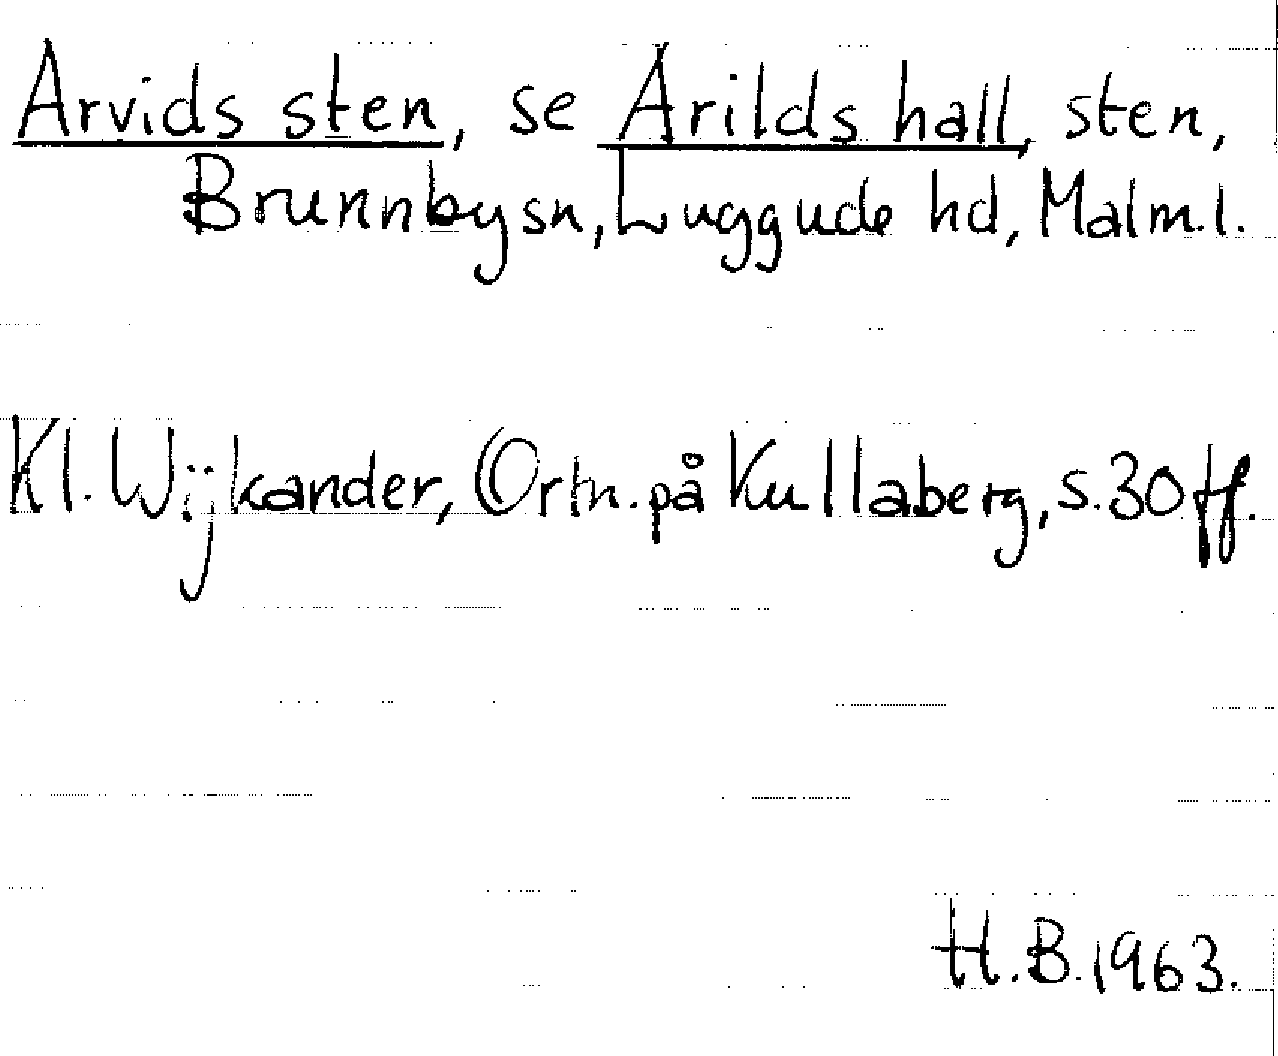 Arvids sten, se Arilds hall, sten,
Brunnby sn, Luggude hd, Malm.l.
Kl. Wijkander, Ortn. på Kullaberg, s. 30 ff.
H.B. 1963.